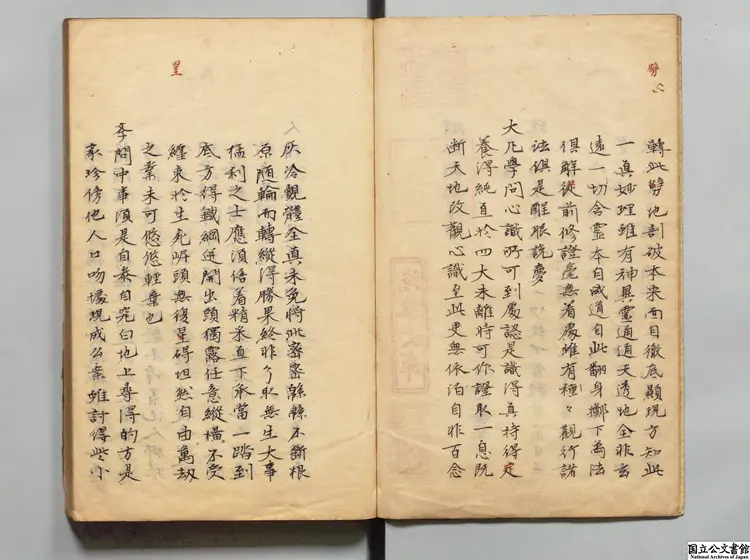 劈
轉此劈地剖破本来面目徹底顕現方知此
一真妙理雖有神異霊通通天透地全非玄
遠一切含霊本自成道自此翻身擲下萬法
俱解從前修證毫無着處雖有種〻観行諸
法俱是醒眼説夢
大凡學問心識所可到處認是識得真持得定
養得純直於四大未離時可作證取一息既
断天地改観心識至此更無依泊自非百念
灰冷観體全真未免將此密密綿綿不断根
原随輪而轉縦得勝果終非了取無生大事
猛利之士應須倍着精采直下承當一踏到
底方得鐵網迸開出頭獨露任意縦横不受
纏束於生死呼頭無復罣碍坦然自由萬劫
之業未可悠悠輕棄也
夲問中事須是自参自究白地上尋得的方是
家珍傍他人口吻據現成公案雖討得些小
罣
国立公文書館
National Archives of Japan